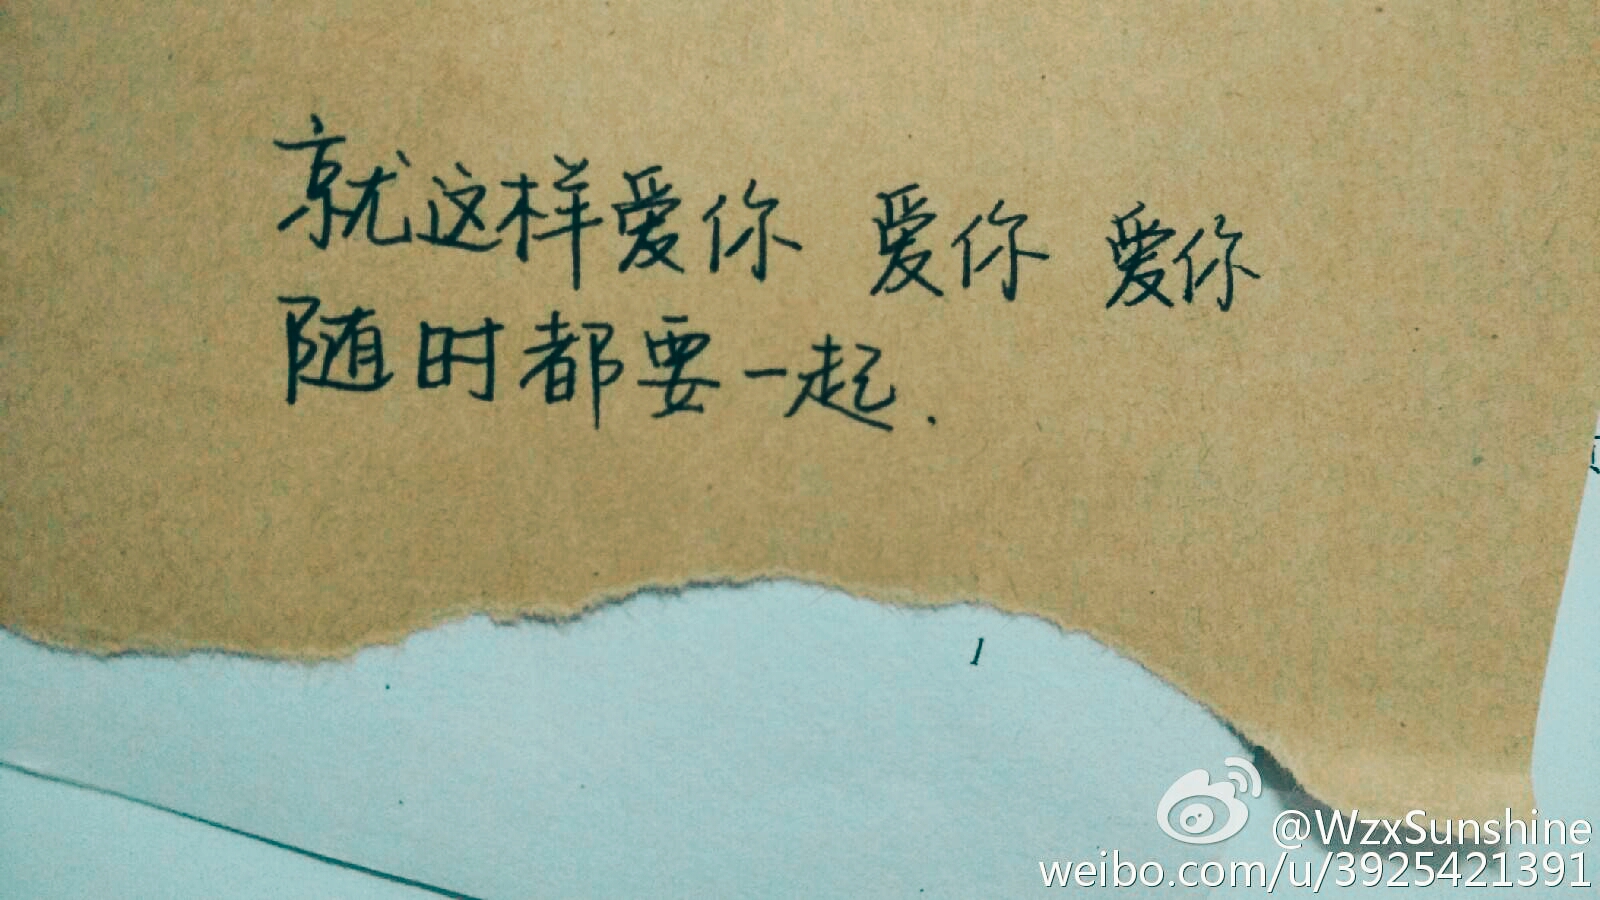 就这样爱你 爱你 爱你
随时都要一起.
1
@WzxSunshine
weibo.com/u/3925421391